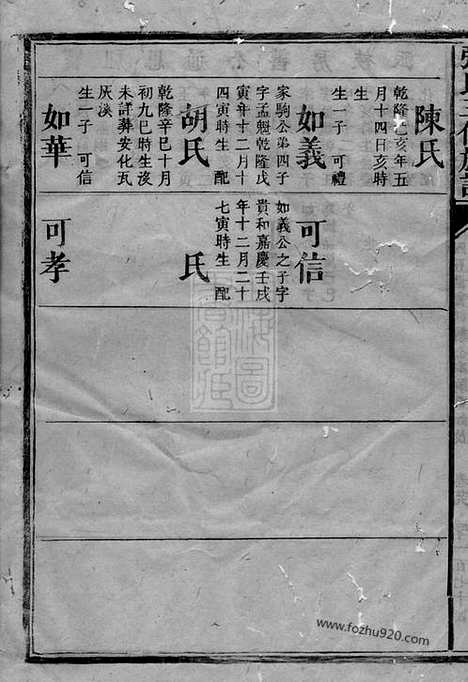 陳氏
乾隆乙亥年五
月十四日亥時
生
生一子 可禮
如義
家駒公第四子
字孟魁乾隆戊
寅年十二月十
四寅時生 配
胡氏
乾隆辛巳十月
初九巳時生沒
未詳葬安化瓦
灰溪
生一子 可信
如華
可信
如義公之子字
貴和嘉慶壬戌
年十二月二十
七寅時生 配
氏
可孝
www.fozhu920.com